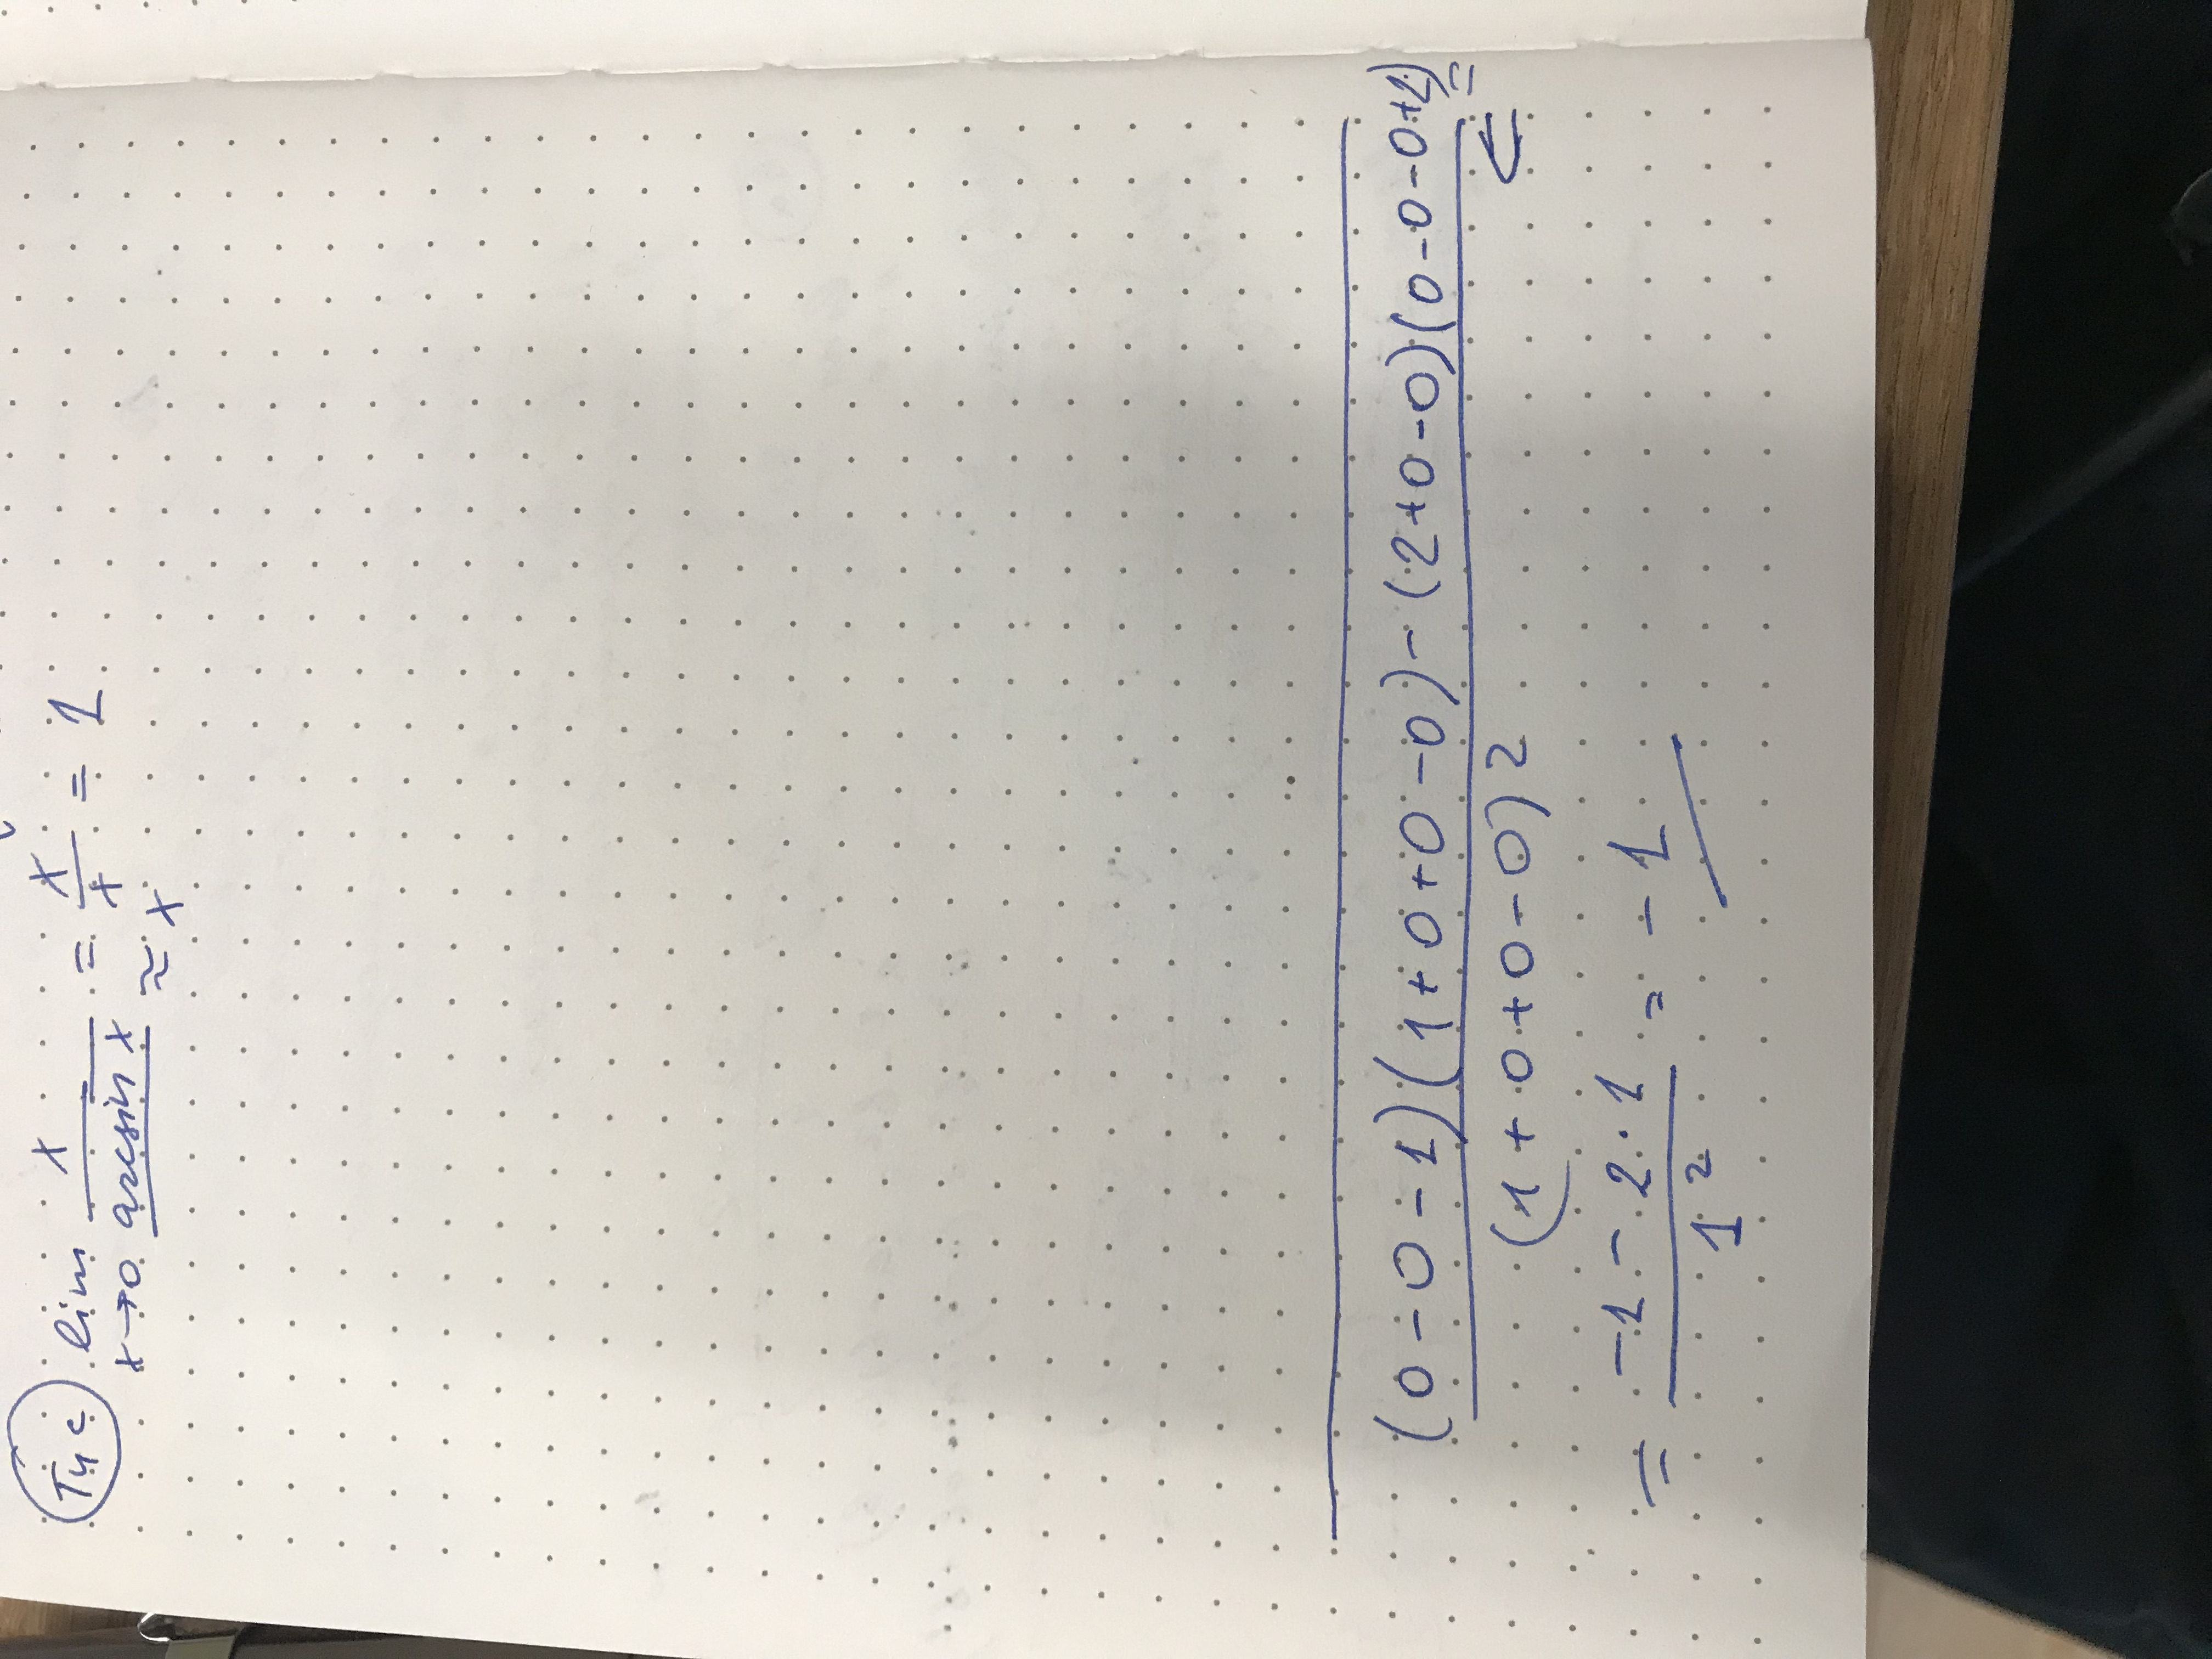 Тус lim x/arcsin x = x/x = 1
x→0 ≈ x
(0-0-1)(1+0+0-0)-(2+0-0)(0-0-0+1) =
(1+0+0-0)2
= (-1-2·1)/1² = -1